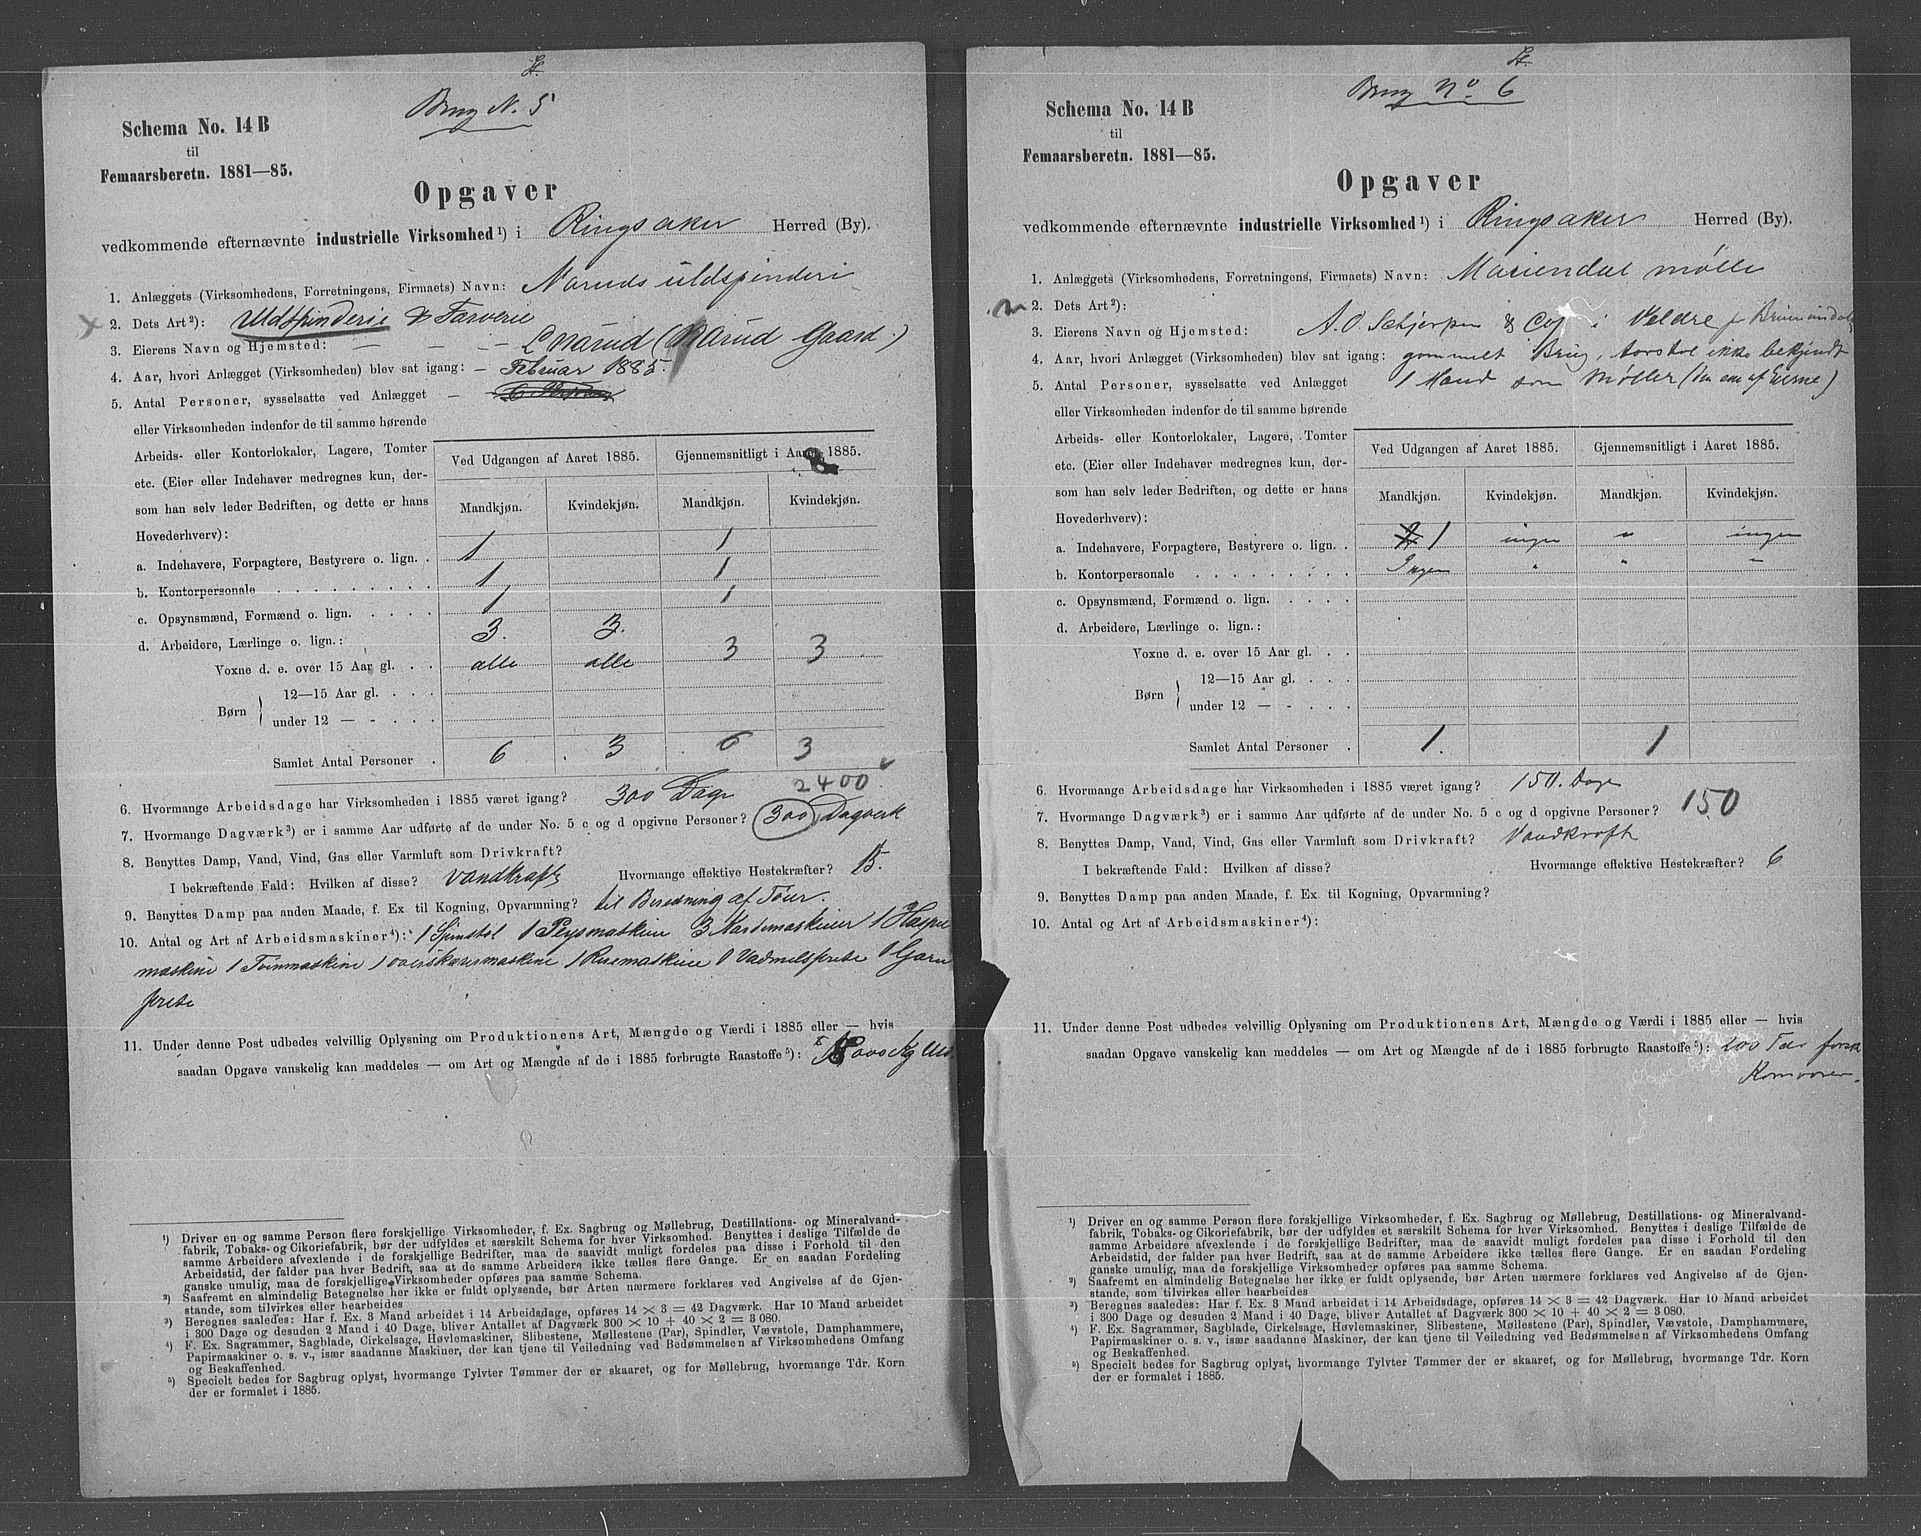 Brug N. 5
Schema No. 14 B
til
Femaarsberetn. 1881—85.
Opgaver
vedkommende efternævnte industrielle Virksomhed¹) i Ringsaker Herred (By).
1. Anlæggets (Virksomhedens, Forretningens, Firmaets) Navn: Naruds uldspinderi
2. Dets Art²): Uldspinderie & Farverie
3. Eierens Navn og Hjemsted: — — — L Narud (Narud Gaard.)
4. Aar, hvori Anlægget (Virksomheden) blev sat igang: — Februar 1885.
5. Antal Personer, sysselsatte ved Anlægget — 6 Personer
eller Virksomheden indenfor de til samme hørende
Arbeids- eller Kontorlokaler, Lagere, Tomter
etc. (Eier eller Indehaver medregnes kun, der-
som han selv leder Bedriften, og dette er hans
Hovederhverv):
Ved Udgangen af Aaret 1885. Gjennemsnitligt i Aaret 1885.
Mandkjøn. Kvindekjøn. Mandkjøn. Kvindekjøn.
a. Indehavere, Forpagtere, Bestyrere o. lign. . 1 1
b. Kontorpersonale . . . . . . . . . 1 1
c. Opsynsmænd, Formænd o. lign. . . . . 1 1
d. Arbeidere, Lærlinge o. lign.: 3. 3.
Voxne d. e. over 15 Aar gl. . . alle alle 3 3
Børn
12—15 Aar gl. . . .
under 12 — - . . .
Samlet Antal Personer . 6 3 6 3
6. Hvormange Arbeidsdage har Virksomheden i 1885 været igang? 300 Dage 2400
7. Hvormange Dagværk³) er i samme Aar udførte af de under No. 5 c og d opgivne Personer? 300 Dagværk
8. Benyttes Damp, Vand, Vind, Gas eller Varmluft som Drivkraft?
I bekræftende Fald: Hvilken af disse? Vandkraft Hvormange effektive Hestekræfter? 15.
9. Benyttes Damp paa anden Maade, f. Ex til Kogning, Opvarmning? til Beredning af Tøier.
10. Antal og Art af Arbeidsmaskiner⁴): 1 Spinstol 1 Peysmaskine 3 Kardemaskiner 1 Haspe
maskine 1 Tvinmaskine 1 overskæremaskine 1 Ruemaskine 1 Vadmelsprese 1 Garn
prese
11. Under denne Post udbedes velvillig Oplysning om Produktionens Art, Mængde og Værdi i 1885 eller — hvis
saadan Opgave vanskelig kan meddeles — om Art og Mængde af de i 1885 forbrugte Raastoffe⁵): 8000 Kg Uld.
¹) Driver en og samme Person flere forskjellige Virksomheder, f. Ex. Sagbrug og Møllebrug, Destillations- og Mineralvand-
fabrik, Tobaks- og Cikoriefabrik, bør der udfyldes et særskilt Schema for hver Virksomhed. Benyttes i deslige Tilfælde de
samme Arbeidere afvexlende i de forskjellige Bedrifter, maa de saavidt muligt fordeles paa disse i Forhold til den
Arbeidstid, der falder paa hver Bedrift, saa at de samme Arbeidere ikke tælles flere Gange. Er en saadan Fordeling
ganske umulig, maa de forskjellige Virksomheder opføres paa samme Schema.
²) Saafremt en almindelig Betegnelse her ikke er fuldt oplysende, bør Arten nærmere forklares ved Angivelse af de Gjen-
stande, som tilvirkes eller bearbeides
³) Beregnes saaledes: Har f. Ex. 3 Mand arbeidet i 14 Arbeidsdage, opføres 14 × 3 = 42 Dagværk. Har 10 Mand arbeidet
i 300 Dage og desuden 2 Mand i 40 Dage, bliver Antallet af Dagværk 300 × 10 + 40 × 2 = 3 080.
⁴) F. Ex. Sagrammer, Sagblade, Cirkelsage, Høvlemaskiner, Slibestene, Møllestene (Par), Spindler, Vævstole, Damphammere,
Papirmaskiner o. s. v., især saadanne Maskiner, der kan tjene til Veiledning ved Bedømmelsen af Virksomhedens Omfang
og Beskaffenhed.
⁵) Specielt bedes for Sagbrug oplyst, hvormange Tylvter Tømmer der er skaaret, og for Møllebrug, hvormange Tdr. Korn
der er formalet i 1885.
Brug No 6
Schema No. 14 B
til
Femaarsberetn. 1881—85.
Opgaver
vedkommende efternævnte industrielle Virksomhed¹) i Ringsaker Herred (By).
1. Anlæggets (Virksomhedens, Forretningens, Firmaets) Navn: Mariendal mølle
2. Dets Art²):
3. Eierens Navn og Hjemsted: A. O. Schjerpen & Co i Veldre pr Brumunddal
4. Aar, hvori Anlægget (Virksomheden) blev sat igang: gammelt Brug, Aarstal ikke bekjendt
5. Antal Personer, sysselsatte ved Anlægget 1 Mand som Møller (den ene af Eierne)
eller Virksomheden indenfor de til samme hørende
Arbeids- eller Kontorlokaler, Lagere, Tomter
etc. (Eier eller Indehaver medregnes kun, der-
som han selv leder Bedriften, og dette er hans
Hovederhverv):
Ved Udgangen af Aaret 1885. Gjennemsnitligt i Aaret 1885.
Mandkjøn. Kvindekjøn. Mandkjøn. Kvindekjøn.
a. Indehavere, Forpagtere, Bestyrere o. lign. . 1 ingen " ingen
b. Kontorpersonale . . . . . . . . . Ingen " " "
c. Opsynsmænd, Formænd o. lign. . . . .
d. Arbeidere, Lærlinge o. lign.:
Voxne d. e. over 15 Aar gl. . .
Børn
12—15 Aar gl. . . .
under 12 — - . . .
Samlet Antal Personer . 1. 1
6. Hvormange Arbeidsdage har Virksomheden i 1885 været igang? 150. Dage
7. Hvormange Dagværk³) er i samme Aar udførte af de under No. 5 c og d opgivne Personer? 150
8. Benyttes Damp, Vand, Vind, Gas eller Varmluft som Drivkraft? Vandkraft
I bekræftende Fald: Hvilken af disse? Hvormange effektive Hestekræfter? 6
9. Benyttes Damp paa anden Maade, f. Ex til Kogning, Opvarmning?
10. Antal og Art af Arbeidsmaskiner⁴):
11. Under denne Post udbedes velvillig Oplysning om Produktionens Art, Mængde og Værdi i 1885 eller — hvis
saadan Opgave vanskelig kan meddeles — om Art og Mængde af de i 1885 forbrugte Raastoffe⁵): 200 Tdr forsk
Kornvarer.
¹) Driver en og samme Person flere forskjellige Virksomheder, f. Ex. Sagbrug og Møllebrug, Destillations- og Mineralvand-
fabrik, Tobaks- og Cikoriefabrik, bør der udfyldes et særskilt Schema for hver Virksomhed. Benyttes i deslige Tilfælde de
samme Arbeidere afvexlende i de forskjellige Bedrifter, maa de saavidt muligt fordeles paa disse i Forhold til den
Arbeidstid, der falder paa hver Bedrift, saa at de samme Arbeidere ikke tælles flere Gange. Er en saadan Fordeling
ganske umulig, maa de forskjellige Virksomheder opføres paa samme Schema.
²) Saafremt en almindelig Betegnelse her ikke er fuldt oplysende, bør Arten nærmere forklares ved Angivelse af de Gjen-
stande, som tilvirkes eller bearbeides
³) Beregnes saaledes: Har f. Ex. 3 Mand arbeidet i 14 Arbeidsdage, opføres 14 × 3 = 42 Dagværk. Har 10 Mand arbeidet
i 300 Dage og desuden 2 Mand i 40 Dage, bliver Antallet af Dagværk 300 × 10 + 40 × 2 = 3 080.
⁴) F. Ex. Sagrammer, Sagblade, Cirkelsage, Høvlemaskiner, Slibestene, Møllestene (Par), Spindler, Vævstole, Damphammere,
Papirmaskiner o. s. v., især saadanne Maskiner, der kan tjene til Veiledning ved Bedømmelsen af Virksomhedens Omfang
og Beskaffenhed.
⁵) Specielt bedes for Sagbrug oplyst, hvormange Tylvter Tømmer der er skaaret, og for Møllebrug, hvormange Tdr. Korn
der er formalet i 1885.